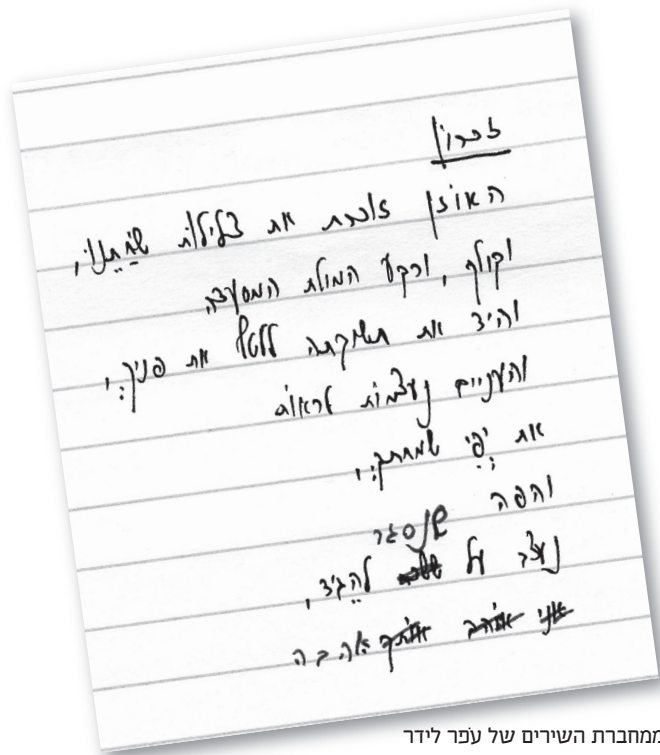 זכרון
האוזן זוכרת את צלילות שִׂחָתֵנוּ,
וקולך, ורקע המולת המסעדה
והיד את תשוקתה ללטף את פניךְ,
והעניים נעצמות לראות
את יֳפִי שמחתךְ,
והפה שנסגר
נעצב על להגיד,
אני אוהב אותך אהבה
ממחברת השירים של עֹפר לידר